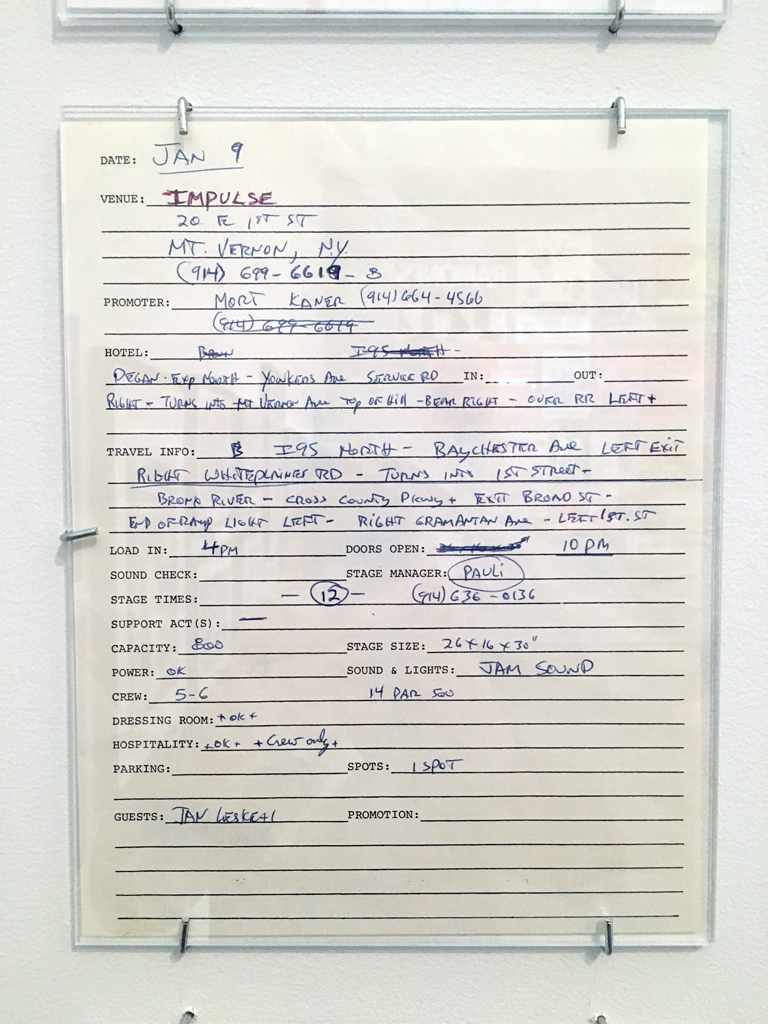 DATE: JAN 9
VENUE: IMPULSE
20 E 1ST ST
MT. VERNON, N.Y.
(914) 699-6619-8
PROMOTER: MORT KANER (914) 664-4566
(914) 699-6619
HOTEL: I95 NORTH -
DEGAN. EXP NORTH - YONKERS AVE SERVICE RD IN: OUT:
RIGHT - TURNS INTO MT VERNON AVE TOP OF HILL - BEAR RIGHT - OVER RR LEFT +
TRAVEL INFO: B I95 NORTH - BAYCHESTER AVE LEFT EXIT
RIGHT WHITEPLAINES RD - TURNS INTO 1ST STREET -
BRONX RIVER - CROSS COUNTY PKWY + EXIT BROAD ST -
END OF RAMP LIGHT LEFT - RIGHT GRAMANTAN AVE - LEFT 1ST. ST
LOAD IN: 4PM DOORS OPEN: 10 PM
SOUND CHECK: STAGE MANAGER: PAULI
STAGE TIMES: - 12 - (914) 636-0136
SUPPORT ACT(S): —
CAPACITY: 800 STAGE SIZE: 26 X 16 X 30"
POWER: OK SOUND & LIGHTS: JAM SOUND
CREW: 5-6 14 PAR 500
DRESSING ROOM: + OK +
HOSPITALITY: + OK + + Crew only +
PARKING: SPOTS: 1 SPOT
GUESTS: JAN PROMOTION: